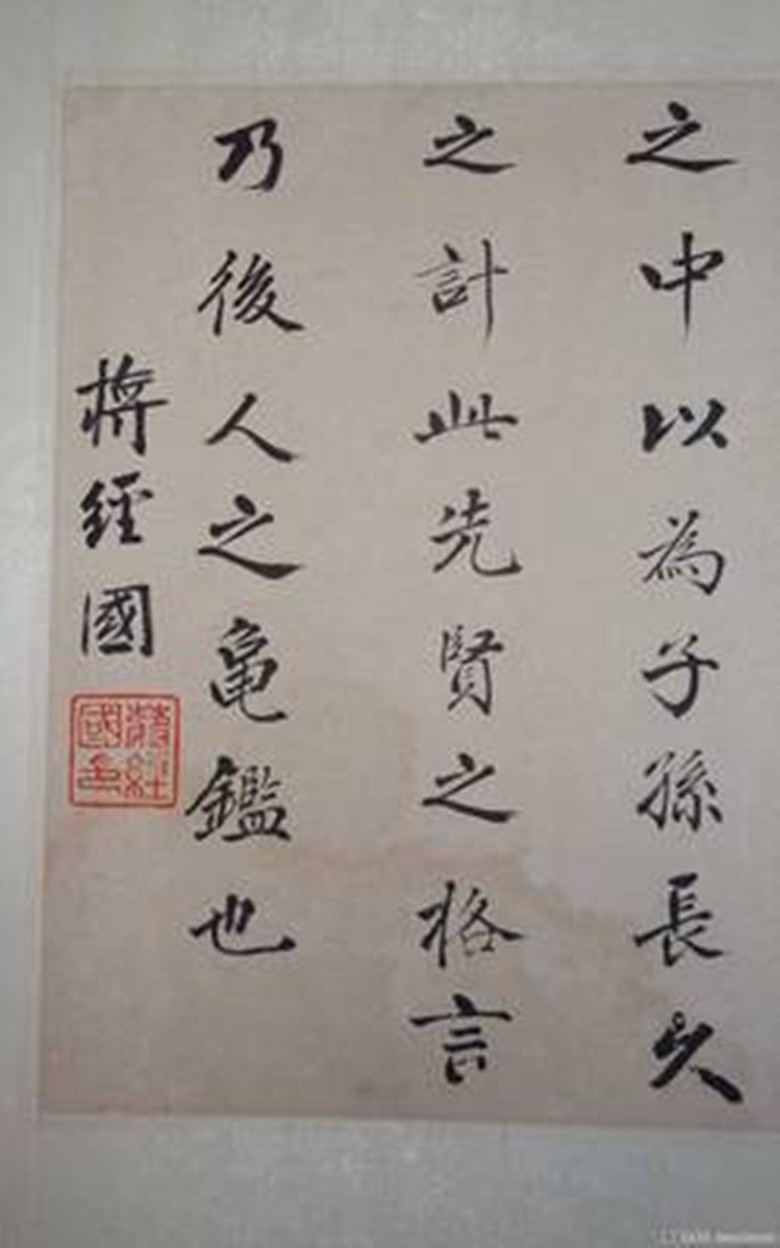 之中以為子孫長久
之計此先賢之格言
乃後人之龜鑑也
蔣經國
蔣經
國印